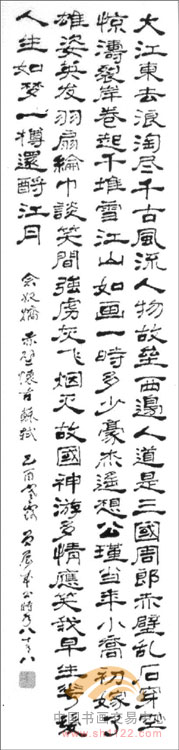 大江東去浪淘尽千古風流人物故垒西邊人道是三國周郎赤壁乱石穿空
惊涛裂岸卷起千堆雪江山如画一時多少豪杰遥想公瑾当年小喬初嫁了
雄姿英发羽扇綸巾談笑間強虏灰飞烟灭故國神游多情應笑我早生华发
人生如梦一樽還酹江月
念奴嬌 赤壁懷古 蘇軾 乙酉寒露
中国书画交易中心